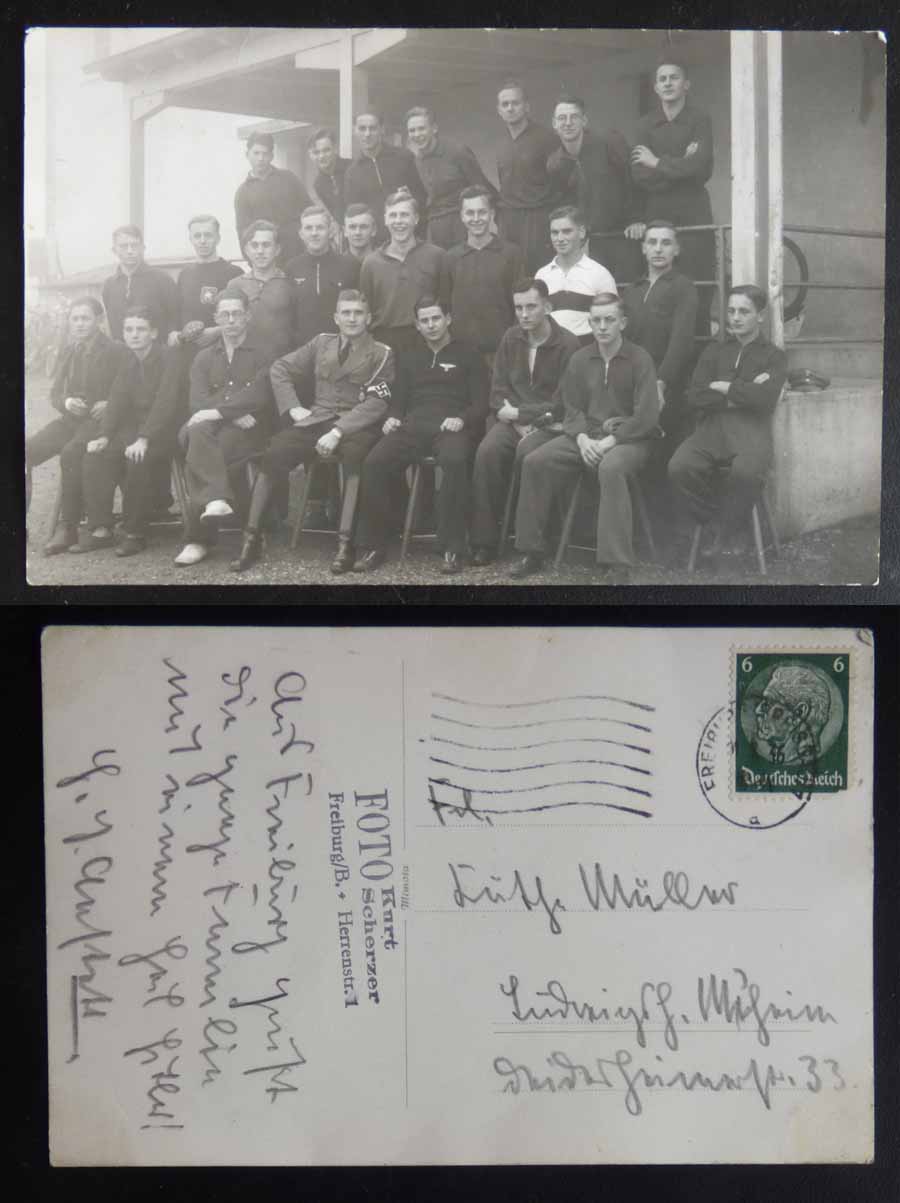 Aus Freiburg grüßt
die ganze Familie
mit einem Heil Hitler!
FOTO Kurt Scherzer
Freiburg/B. • Herrenstr. 1
Mimosa
6 6
Deutsches Reich
FREIBURG
a
Frl.
Müller
Ludwigsh. Mdheim
Deidesheimerstr. 33.